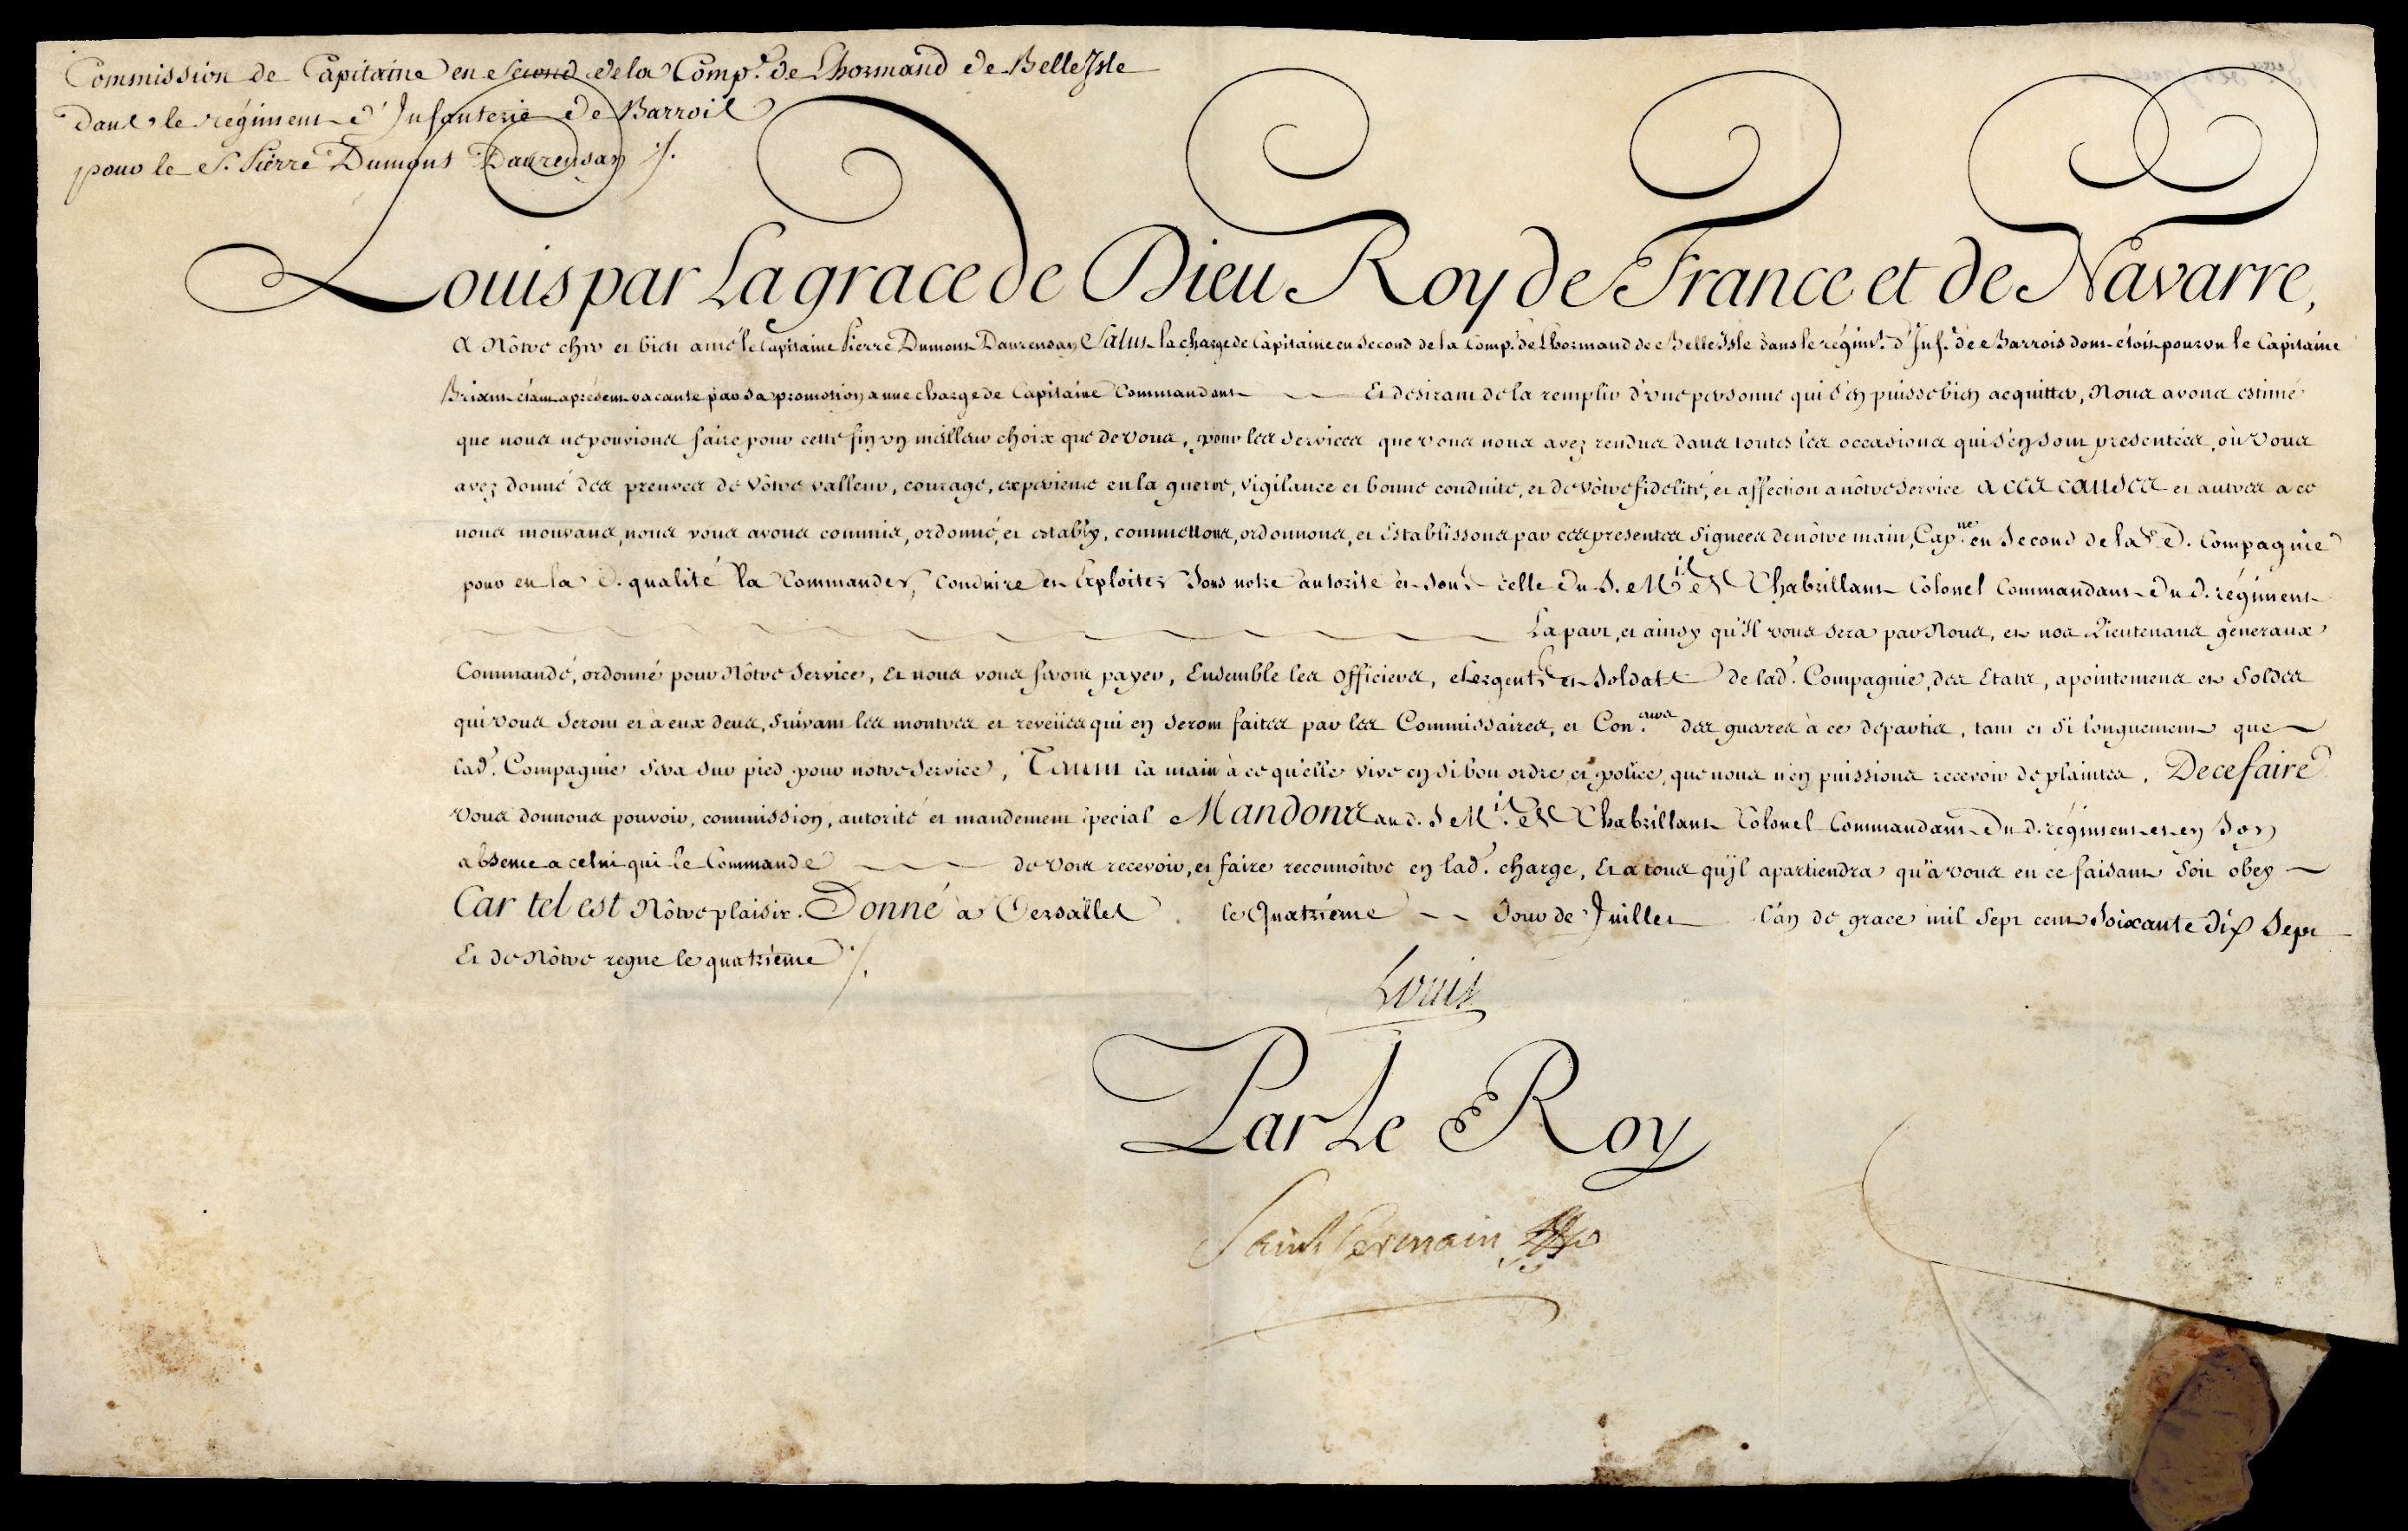 Commission de Capitaine en Second de la Comp.e de Lhormand de Belle Isle
dans le régiment d'Infanterie de Barrois
pour le S. Pierre Dumont Daurensan ./.
Louis par La grace de Dieu Roy de France et de Navarre,
A Nôtre cher et bien amé le Capitaine Pierre Dumont Daurensan Salut. la charge de Capitaine en Second de la Comp.e de Lhormand de Belle Isle dans le régim.t d'Inf.e de Barrois dont étoit pourvu le Capitaine
étant apresent vacante par sa promotion a une charge de Capitaine Commandant Et desirant de la remplir d'une personne qui s'en puisse bien acquitter, Nous avons estimé
que nous ne pouvions faire pour cette fin un meilleur choix que de vous, pour les services que vous nous avez rendus dans toutes les occasions qui s'en sont presentées, où vous
avez donné des preuves de Vôtre valleur, courage, experience en la guerre, vigilance et bonne conduite, et de vôtre fidelité, et affection a nôtre service A ces causes et autres a ce
nous mouvans, nous vous avons commis, ordonné, et estably, commettons, ordonnons, et établissons par ces presentes signées de nôtre main, Cap.ne en Second de la d. Compagnie
pour en la d. qualité la Commander, Conduire et Exploiter sous notre autorité et sous celle du S. M.is de Chabrillant Colonel Commandant du d. régiment
La part, et ainsy qu'Il vous sera par Nous, et nos Lieutenans généraux
Commandé, ordonné pour Nôtre Service, Et nous vous ferons payer, Ensemble les Officiers, Sergents et Soldats de lad. Compagnie, des Etats, apointemens et Soldes
qui vous seront et à eux deus, suivant les montres et reveües qui en seront faites par les Commissaires, et Con.eurs des guerres à ce departis, tant et si longuement que
lad. Compagnie sera sur pied pour notre Service, Tenant la main à ce qu'elle vive en si bon ordre et police, que nous n'en puissions recevoir de plaintes, De ce faire
Vous donnons pouvoir, commission, autorité et mandement special Mandons au d. S M.is de Chabrillant Colonel Commandant du d. régiment et en son
absence a celui qui le Commande de vous recevoir, et faire reconnoître en lad. charge, Et a tous qu'il apartiendra qu'à vous en ce faisant soit obey
Car tel est Nôtre plaisir. Donné à Versailles le Quatrieme Jour de Juillet l'an de grace mil sept cent soixante dix sept
Et de Nôtre regne le quatrième ./.
Louis
Par Le Roy
Saint Germain